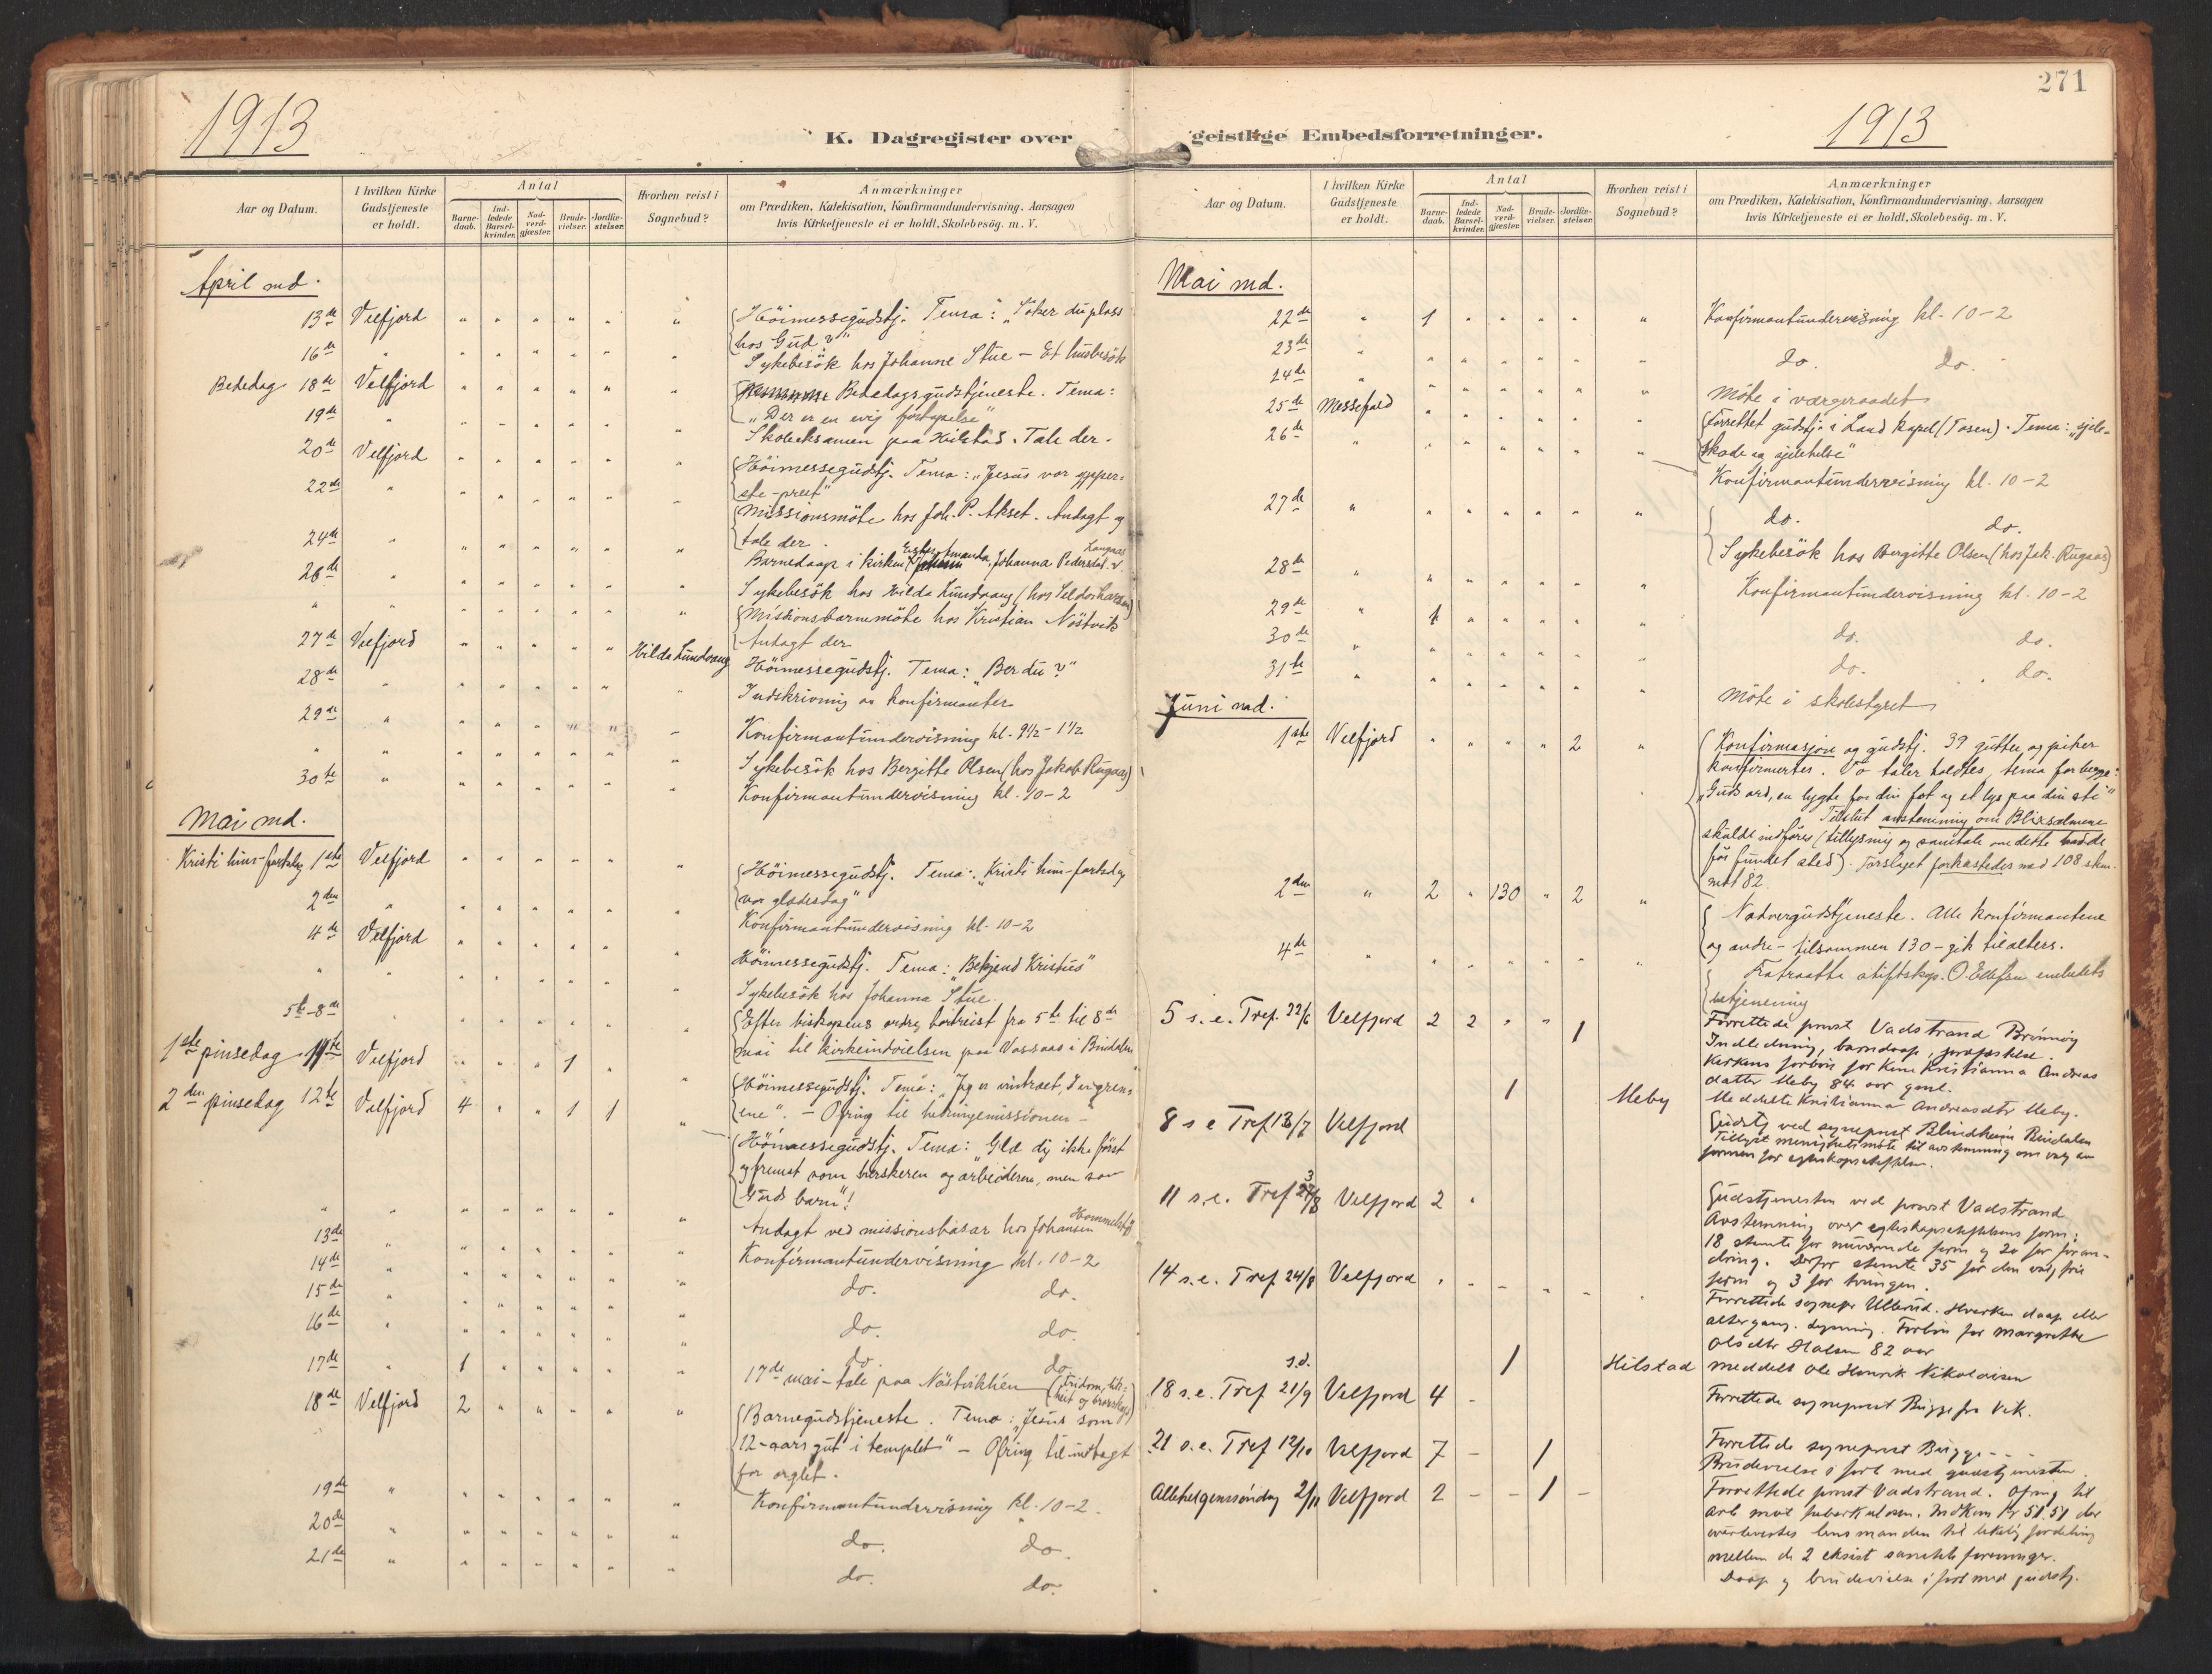 271
1913
K. Dagregister over geistlige Embedsforretninger.
1913
Aar og Datum.
I hvilken Kirke Gudstjeneste er holdt.
Antal
Barnedaab.
Indledede Barselkvinder.
Nadverdgjæster.
Brudevielser.
Jordfæstelser.
Hvorhen reist i Sognebud?
Anmærkninger
om Prædiken, Katekisation, Konfirmandundervisning, Aarsagen
hvis Kirketjeneste ei er holdt, Skolebesøg. m. V.
April md.
13de Velfjord " " " " " " Höimessegudstj. Tema: "Söker du plass
hos Gud?"
16de " " " " " " " Sykebesök hos Johanne Stue - Et husbesök
Bededag 18de Velfjord " " " " " " Bededagsgudstjeneste. Tema:
"Der er en evig fortapelse"
19de " " " " " " " Skoleeksamen paa Hilstad. Tale der.
20de Velfjord " " " " " " Höimessegudstj. Tema: "Jesus vor ypper-
ste-prest"
22de " " " " " " " Missionsmöte hos Joh. P. Akset. Andagt og
tale der.
24de " " " " " " " Barnedaap i kirken Ester Amanda Johanna Pedersdat. v. Langaas
26de " " " " " " " Sykebesök hos Hilda Lundvang (hos
" " " " " " " " Missionsbarnemöte hos Kristian Nöstvik
Andagt der
27de Velfjord " " " " " Hilda Lundvang Höimessegudstj. Tema: "Ber du?"
28de " " " " " " " Indskrivning av konfirmanter
29de " " " " " " " Konfirmantundervisning kl. 9½-1½
" " " " " " " " Sykebesök hos Bergitte Olsen (hos Jakob Rugaas)
30te " " " " " " " Konfirmantundervisning kl. 10-2
Mai md.
Kristi him-fartsdag 1ste Velfjord " " " " " " Höimessegudstj. Tema: "Kristi him-fartsdag
vor glædesdag"
2den " " " " " " " Konfirmantundervisning kl. 10-2
4de Velfjord " " " " " " Höimessegudstj. Tema: "Bekjend Kristus"
" " " " " " " " Sykebesök hos Johanna Stue.
5te-8de " Efter biskopens ordre bortreist fra 5te til 8de
mai til kirkeindvielsen paa Vassaas i Bindalen
1ste pinsedag 11te Velfjord " " " 1 " Höimessegudstj. Tema: "Jeg er vintræet, I er gren-
ene". - Ofring til hedningemissionen -
2den pinsedag 12te Velfjord 4 " " 1 1 " Höimessegudstj. Tema: "Glæ dig ikke först
og fremst som hersker en og arbeideren, men som
Guds barn"!
" " " " " " " " Andagt ved missionsbasar hos Johansen
13de " " " " " " " Konfirmantundervisning kl. 10-2
14de " " " " " " " do. do.
15de " " " " " " " do. do.
16de " " " " " " " do. do.
17de " 1 " " " " " 17de mai-tale paa NöstvikhEen (Fridom,
18de Velfjord 2 " " " " " Barnegudstjeneste. Tema: "Jesus som
12-aars gut i templet" - Ofring til indtægt
for orglet.
19de " " " " " " " Konfirmantundervisning kl. 10-2.
20de " " " " " " " do. do.
21de " " " " " " " do. do.
Aar og Datum.
I hvilken Kirke Gudstjeneste er holdt.
Antal
Barnedaab.
Indledede Barselkvinder.
Nadverdgjæster.
Brudevielser.
Jordfæstelser.
Hvorhen reist i Sognebud?
Anmærkninger
om Prædiken, Katekisation, Konfirmandundervisning, Aarsagen
hvis Kirketjeneste ei er holdt, Skolebesög. m. V.
Mai md.
22de " 1 " " " " " Konfirmantundervisning kl. 10-2
23de " " " " " " " do. do.
24de " " " " " " " Möte i værgeraadet
25de Messefald " " " " " " Forrettet gudstj. i Lande kapel (Tosen). Tema: "sjele-
skade og sjelehelse"
26de " " " " " " " Konfirmantundervisning kl. 10-2
27de " " " " " " " do. do.
Sykebesök hos Bergitte Olsen (hos Jak. Rugaas)
28de " " " " " " " Konfirmantundervisning kl. 10-2
29de " 1 " " " " " do. do.
30de " " " " " " " do. do.
31te " " " " " " " Möte i skolestyret
Juni md.
1ste Velfjord " " " " 2 " Konfirmasjon og gudstj. 39 gutter og piker
konfirmertes. To taler holdtes, tema for begge:
"Guds ord, en lygte for din fot og et lys paa din sti"
Tilslut avstemning om Blixsalmene
skulde indföres (tillysning og samtale om dette hadde
för fundet sted). Forslaget forkastedes med 108 stem.
mot 82.
2den " 2 " 130 " 2 " Nadvergudstjeneste. Alle konfirmantene
og andre - tilsammen 130 - gik til alters.
4de " " " " " " " Fratraatte stiftskap. O. Ellefsen embedets
betjening
5 s. e. Tref. 22/6 Velfjord 2 2 " " 1 Forrettede prost Vadstrand Brönnöy
Indledning, barnedaap, jordfæstelse.
Kirkens forbön for Kine Kristianna Andreas
datter Meby 84 aar gml.
1 Meby Meddelte Kristianna Andreasdtr Meby.
8 s e Tref 13/7 Velfjord Gudstj ved sogneprest Blindheim Bindalen
Tillyst menighetsmöte til avstemning om valg av
formen for egteskapsstiftelse.
11 s. e. Tref 3/8 Velfjord 2 " Gudstjenesten ved prost Vadstrand
Avstemning over egteskapsstiftelsens form:
18 stemte for nuværende form og 20 for foran-
dring. Derfor stemte 35 for den valgfrie
form og 3 for tvungen.
14 s. e. Tref 24/8 Velfjord " - - - - " Forrettede sognepr Ullerud. Hverken daap eller
altergang. Lysning. Forbön for Margrethe
Olsdtr Halsen 82 aar
s.d. 1 Hilstad meddelt Ole Henrik Nikolaisen
18 s. e. Tref 21/9 Velfjord 4 - Forrettede sogneprest Bugge fra Vik.
21 s. e. Tref 12/10 Velfjord 7 - 1 Forrettede sogneprest Bugge - - -
Brudevielse i forb med gudstjenesten.
Allehelgenssöndag 2/11 Velfjord 2 - - 1 - Forrettede prost Vadstrand. Ofring til
arb mot tuberkulosen. Indkom kr 51.51 der
overlevertes lensmanden til likelig fordeling
mellem de 2 eksist sanitets foreninger.
Daap og brudevielse i forb med gudstj.